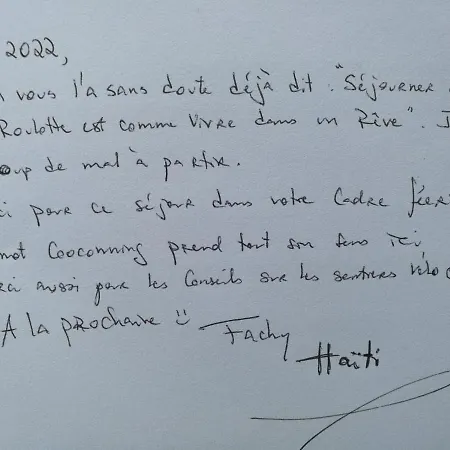 2022,
vous l'a sans doute déjà dit : "Séjourner
Roulotte est comme vivre dans un Rêve". J
oup de mal à partir.
ci pour ce séjour dans votre Cadre féer
mot Cooconning prend tout son sens ici
rci aussi pour les Conseils sur les sentiers vélo
A la prochaine
Fachy
Haïti